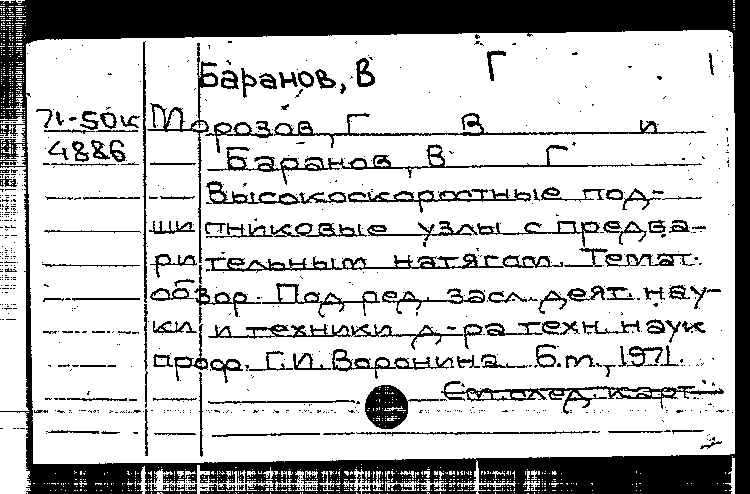 Баранов, В Г
71-50к Морозов, Г В и
4886 Баранов, В Г
Высокоскоростные под-
шипниковые узлы с предва-
рительным натягом. Темат.
обзор. Под ред. засл. деят. нау-
ки и техники д-ра техн. наук
проф. Г.И. Воронина. Б.м., 1971.
См. след. карт.